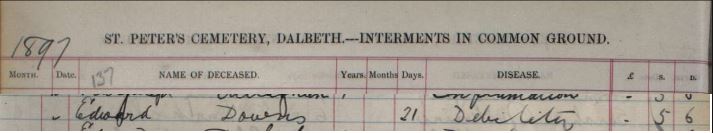 ST. PETER'S CEMETERY, DALBETH.—INTERMENTS IN COMMON GROUND.
1897
MONTH. Date. 137 NAME OF DECEASED. Years. Months Days. DISEASE. £ S. D.
Inflammation - 5 6
" Edward Downs 21 Debility - 5 6
Edward